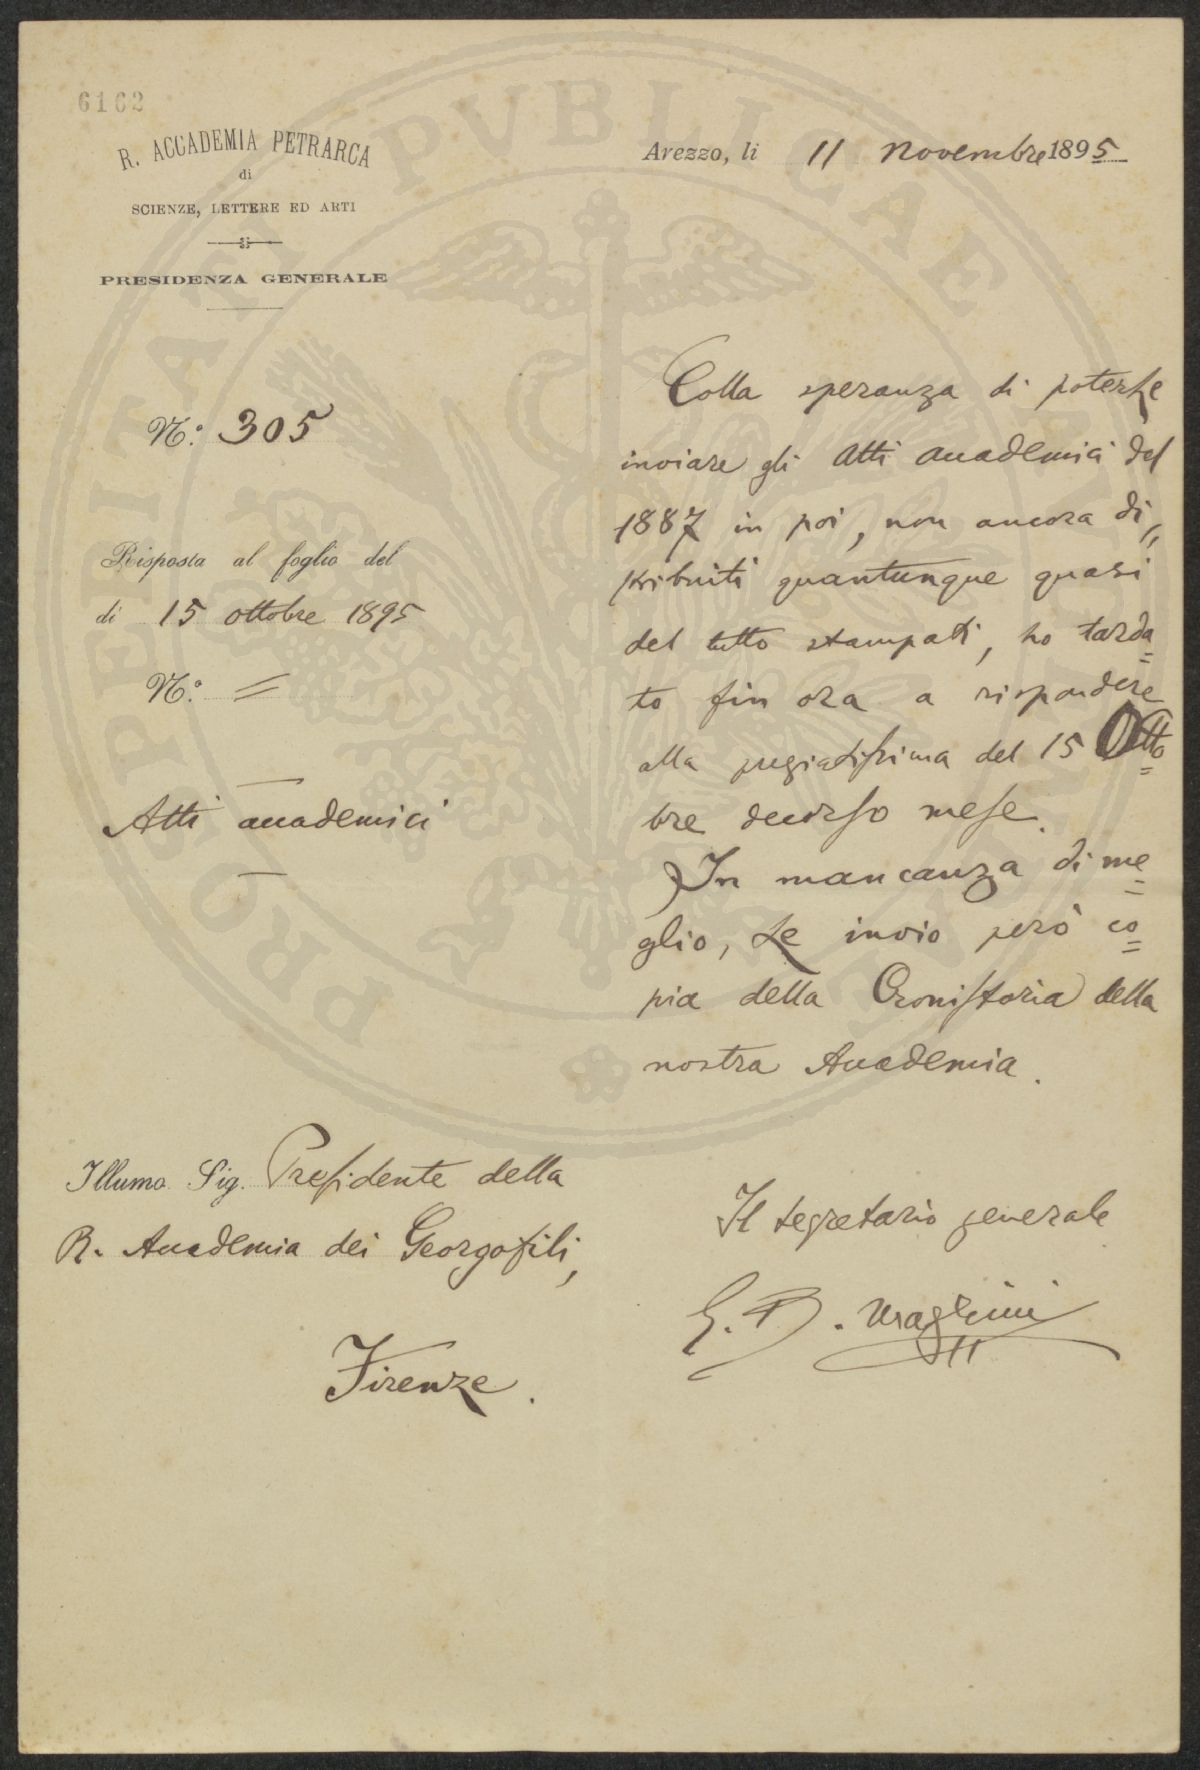 6162
R. ACCADEMIA PETRARCA
di
SCIENZE, LETTERE ED ARTI
PRESIDENZA GENERALE
Arezzo, li 11 Novembre 1895
N.° 305
Risposta al foglio del
di 15 ottobre 1895
N.° =
Atti accademici
Colla speranza di poterLe
inviare gli Atti accademici del
1887 in poi, non ancora di„
stribuiti quantunque quasi
del tutto stampati, ho tarda=
to fin ora a rispondere
alla pregiatissima del 15 Otto=
bre decorso mese.
In mancanza di me=
glio, Le invio però co=
pia della Cronistoria della
nostra Accademia.
Illumo Sig. Presidente della
R. Accademia dei Georgofili,
Firenze.
Il segretario generale
G. B. Maglini
PROSPERITATI PVBLICAE